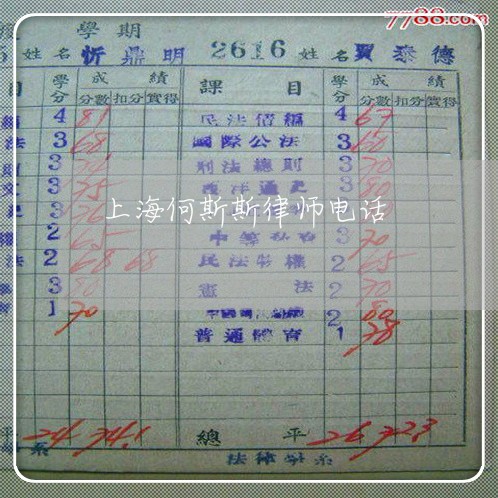 7788.com
學期
姓名 忻鼎明 2616 姓名 賈泰德
目 學分 成績 課目 學分 成績
分數 扣分 實得 分數 扣分 實得
4 81 民法債編 4 67
法 3 68 國際公法 3 60
3 刑法總則 3 70
3 75 西洋通史 3 80
3 3
2 65 3 70
法 2 68 68 民法物權 2 65
3 80 憲法 2 70
1 70 2 80
普通體育 1 78
上海何斯斯律师电话
平 24 74.1 總平 26 72.3
系 法律學系